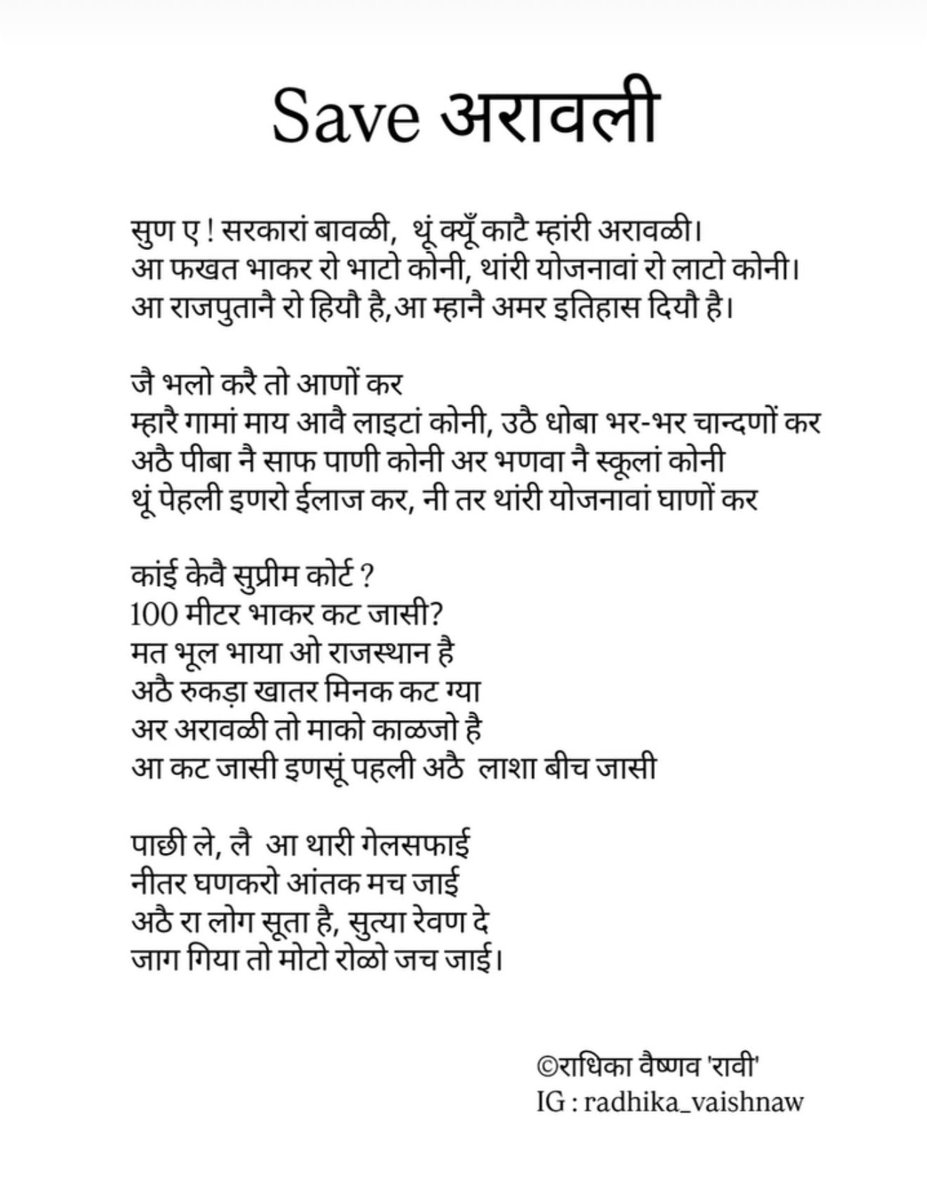 Save अरावली
सुण ए ! सरकारां बावळी, थूं क्यूँ काटै म्हांरी अरावळी।
आ फखत भाकर रो भाटो कोनी, थांरी योजनावां रो लाटो कोनी।
आ राजपुतानै रो हियौ है,आ म्हानै अमर इतिहास दियौ है।
जै भलो करै तो आणों कर
म्हारै गामां माय आवै लाइटां कोनी, उठै धोबा भर-भर चान्दणों कर
अठै पीबा नै साफ पाणी कोनी अर भणवा नै स्कूलां कोनी
थूं पेहली इणरो ईलाज कर, नी तर थांरी योजनावां घाणों कर
कांई केवै सुप्रीम कोर्ट ?
100 मीटर भाकर कट जासी?
मत भूल भाया ओ राजस्थान है
अठै रुकड़ा खातर मिनक कट ग्या
अर अरावळी तो माको काळजो है
आ कट जासी इणसूं पहली अठै लाशा बीच जासी
पाछी ले, लै आ थारी गेलसफाई
नीतर घणकरो आंतक मच जाई
अठै रा लोग सूता है, सुत्या रेवण दे
जाग गिया तो मोटो रोळो जच जाई।
©राधिका वैष्णव 'रावी'
IG : radhika_vaishnaw